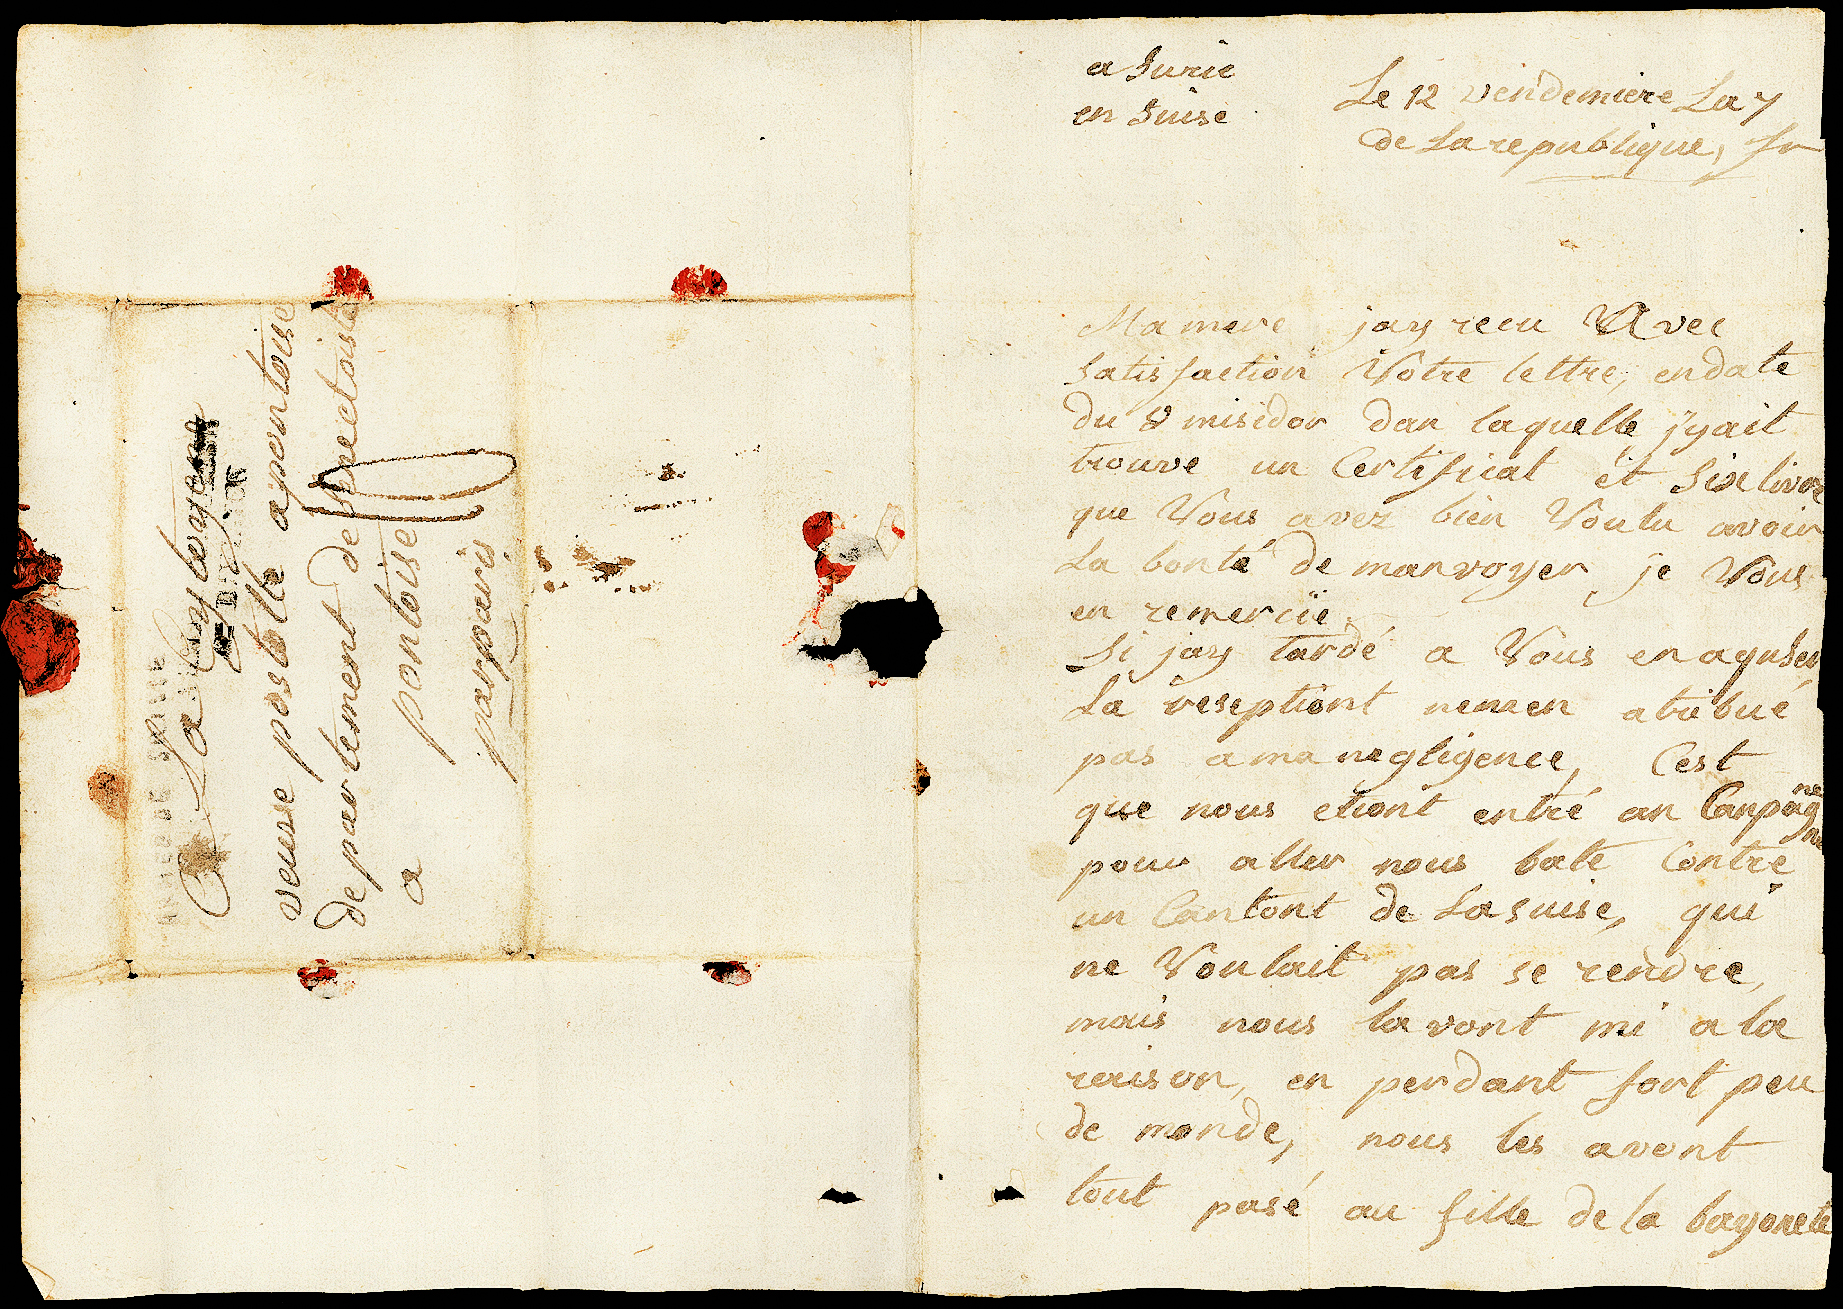 a Suric
en Suise
Le 12 vendemiere La 7
de La republique, fr
Ma mere jay recu Avec
Satisfaction Votre lettre, en date
du 8 misidor dan laquelle jyait
trouve un Certificat et Six livre
que Vous avez bien Voulu avoir
La bonté de manvoyer, je Vous
en remerciie.
Si jay tardé a Vous en aquser
La reseptiont nemen atribué
pas a ma negligence, Cest
que nous etiont entré an Canpagne
pour aller nous bate Contre
un Cantont de La suise, qui
ne Voulait pas se rendre,
mais nous lavont mi a la
raison, en perdant fort peu
de monde, nous les avont
tout pasé au fille de la bayonete
A La Citoyene
veuve postolle a pontoise
departement de
a pontoise
par paris